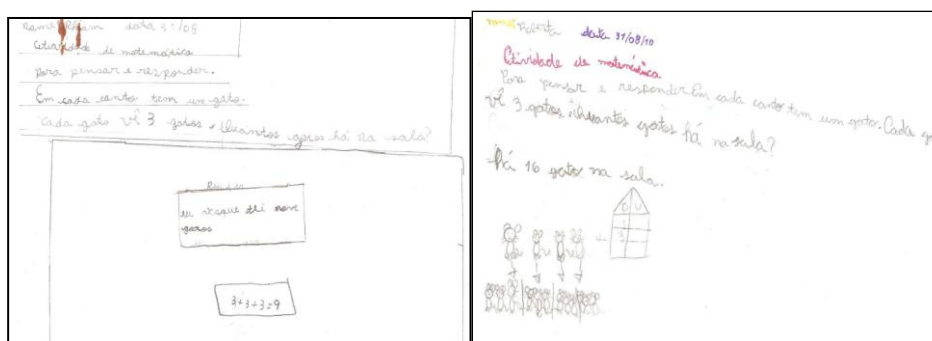 data 31/08
Atividade de matemática
Para pensar e responder.
Em cada canto tem um gato.
Cada gato vê 3 gatos. Quantos gatos há na sala?
nove
gatos
3+3+3=9
data 31/08/10
Atividade de matemática
Para pensar e responder Em cada canto tem um gato. Cada
vê 3 gatos. Quantos gatos há na sala?
há 16 gato na sala.
D U
3